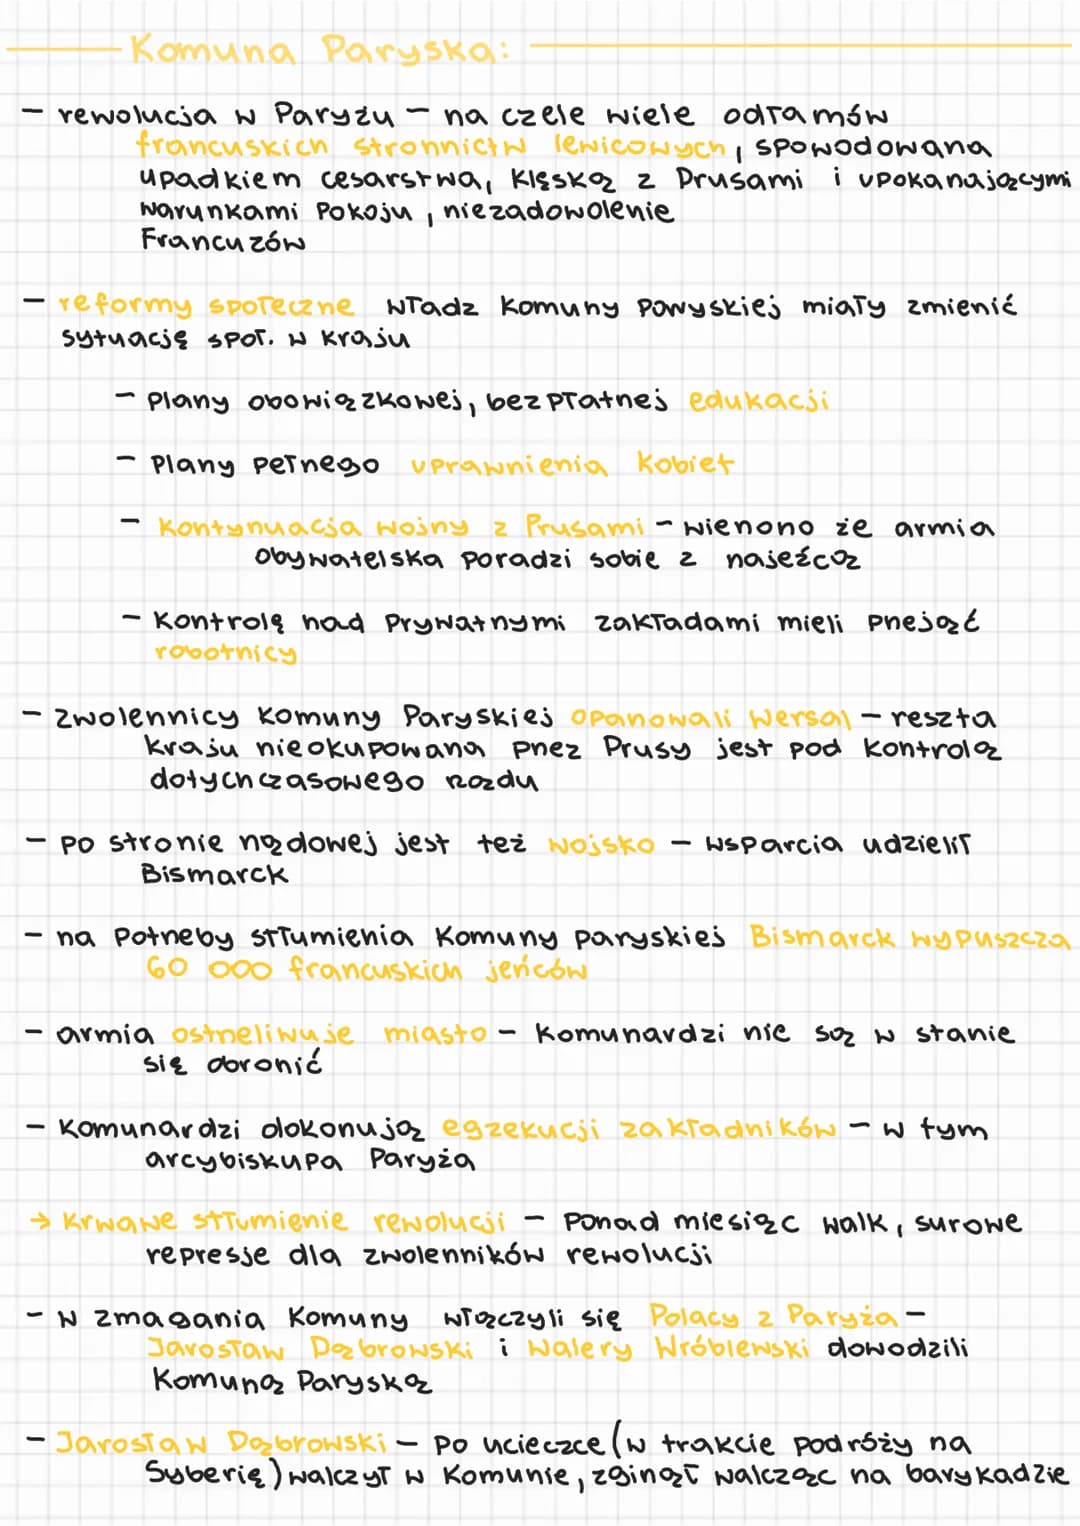 Komuna Paryska:
- rewolucja w Paryżu - na czele wiele odłamów
francuskich stronnictw lewicowych, spowodowana
upadkiem cesarstwa, klęską z Prusami i upokarzającymi
warunkami pokoju, niezadowolenie
Francuzów
- reformy społeczne władz Komuny Paryskiej miały zmienić
sytuację społ. w kraju
- plany obowiązkowej, bezpłatnej edukacji
- plany pełnego uprawnienia kobiet
- kontynuacja wojny z Prusami - wierzono że armia
obywatelska poradzi sobie z najeźcą
- kontrolę nad prywatnymi zakładami mieli przejąć
robotnicy
- zwolennicy Komuny Paryskiej opanowali Wersal - reszta
kraju nieokupowana przez Prusy jest pod kontrolą
dotychczasowego rządu
- po stronie rządowej jest też wojsko - wsparcia udzielił
Bismarck
- na potrzeby stłumienia Komuny paryskiej Bismarck wypuszcza
60 000 francuskich jeńców
- armia ostrzeliwuje miasto - komunardzi nie są w stanie
się obronić
- Komunardzi dokonują egzekucji zakładników - w tym
arcybiskupa Paryża
→ krwawe stłumienie rewolucji - ponad miesiąc walk, surowe
represje dla zwolenników rewolucji
- w zmagania Komuny włączyli się Polacy z Paryża -
Jarosław Dąbrowski i Walery Wróblewski dowodzili
Komuną Paryską
- Jarosław Dąbrowski - po ucieczce (w trakcie podróży na
Syberię) walczył w Komunie, zginął walcząc na barykadzie